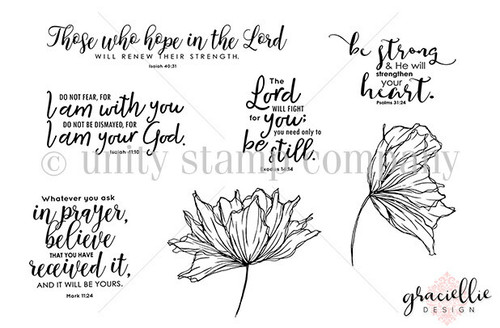 Those who hope in the Lord
WILL RENEW THEIR STRENGTH.
Isaiah 40:31
be strong
& He will
strengthen
your
heart.
Psalms 31:24
DO NOT FEAR, FOR
I am with you
DO NOT BE DISMAYED, FOR
I am your God.
Isaiah 41:10
The
Lord
WILL FIGHT
for
you;
you need only to
be still.
Exodus 14:14
© unity stamp company
Whatever you ask
in prayer,
believe
THAT YOU HAVE
received it,
AND IT WILL BE YOURS.
Mark 11:24
graciellie
DESIGN